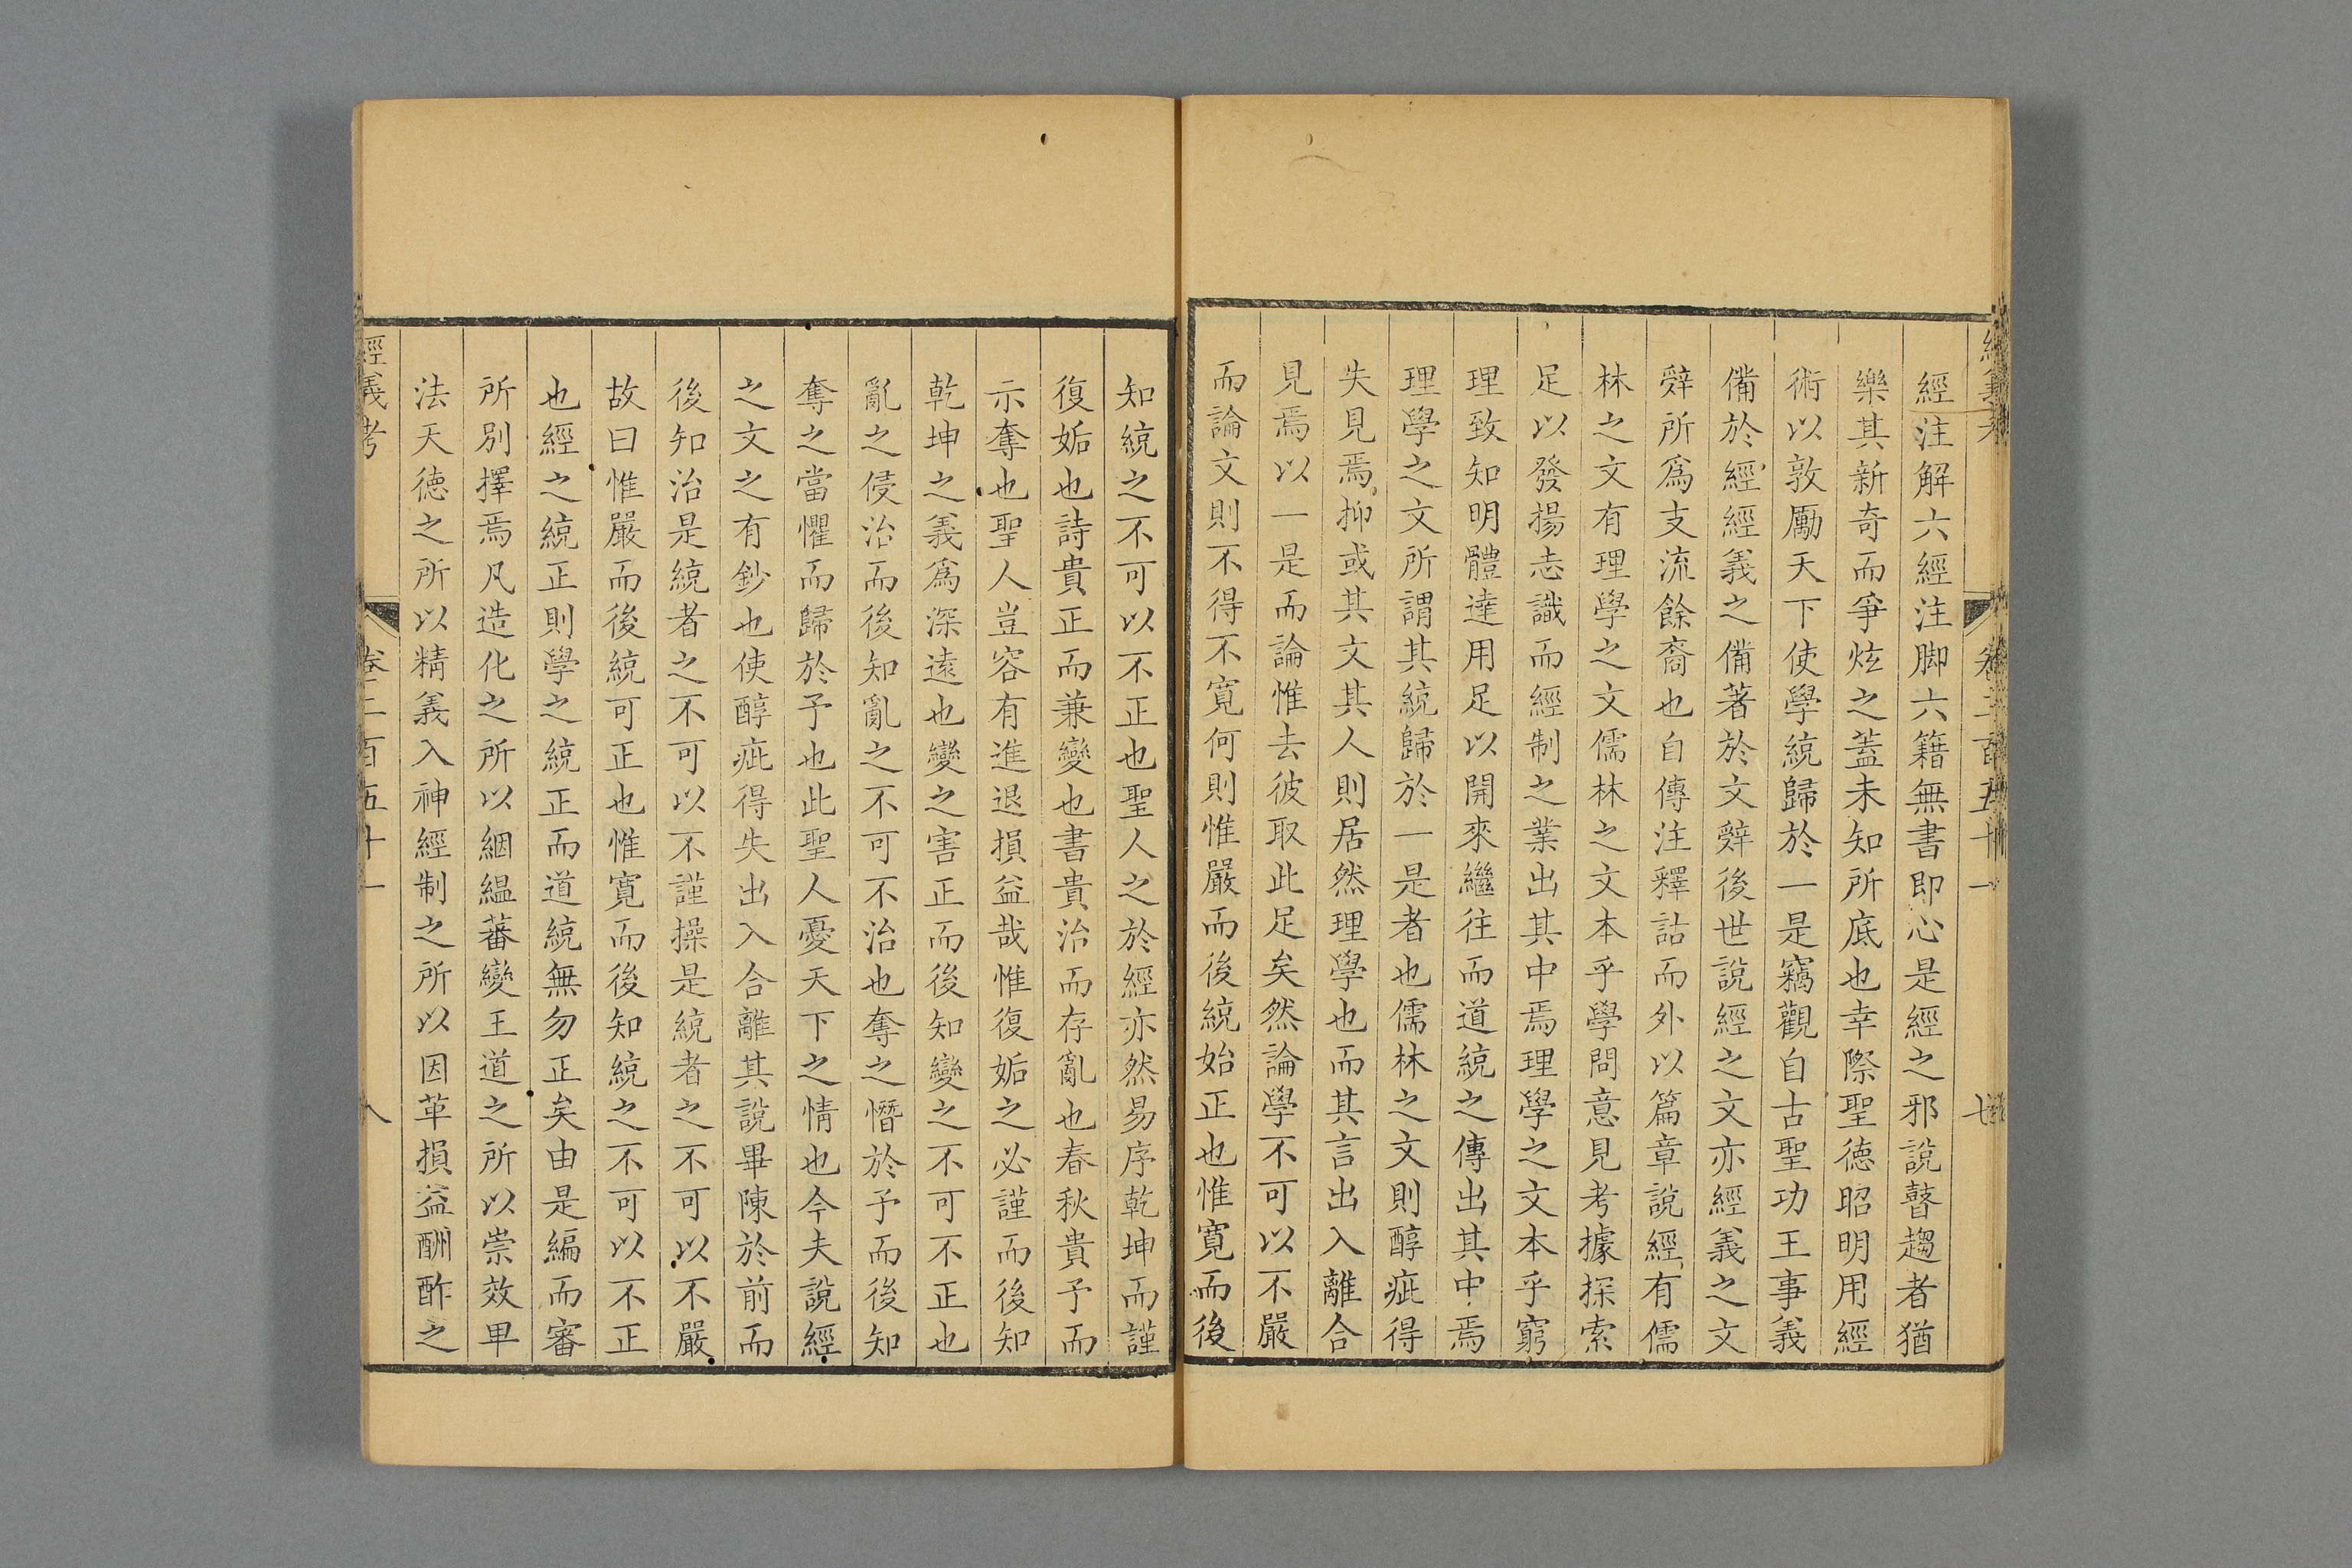 經義考
卷二百五十一
七
經注解六經注脚六籍無書即心是經之邪說瞽趨者猶
樂其新奇而爭炫之蓋未知所底也幸際聖德昭明用經
術以敦勵天下使學統歸於一是竊觀自古聖功王事義
備於經經義之備著於文辭後世說經之文亦經義之文
辭所爲支流餘裔也自傳注釋詁而外以篇章說經有儒
林之文有理學之文儒林之文本乎學問意見考據探索
足以發揚志識而經制之業出其中焉理學之文本乎窮
理致知明體達用足以開來繼往而道統之傳出其中焉
理學之文所謂其統歸於一是者也儒林之文則醇疵得
失見焉抑或其文其人則居然理學也而其言出入離合
見焉以一是而論惟去彼取此足矣然論學不可以不嚴
而論文則不得不寛何則惟嚴而後統始正也惟寛而後
知統之不可以不正也聖人之於經亦然易序乾坤而謹
復姤也詩貴正而兼變也書貴治而存亂也春秋貴予而
示奪也聖人豈容有進退損益哉惟復姤之必謹而後知
乾坤之義爲深遠也變之害正而後知變之不可不正也
亂之侵治而後知亂之不可不治也奪之憯於予而後知
奪之當懼而歸於予也此聖人憂天下之情也今夫說經
之文之有鈔也使醇疵得失出入合離其說畢陳於前而
後知治是統者之不可以不謹操是統者之不可以不嚴
故曰惟嚴而後統可正也惟寛而後知統之不可以不正
也經之統正則學之統正而道統無勿正矣由是編而審
所別擇焉凡造化之所以絪縕蕃變王道之所以崇效卑
法天德之所以精義入神經制之所以因革損益酬酢之
經義考
卷二百五十一
八